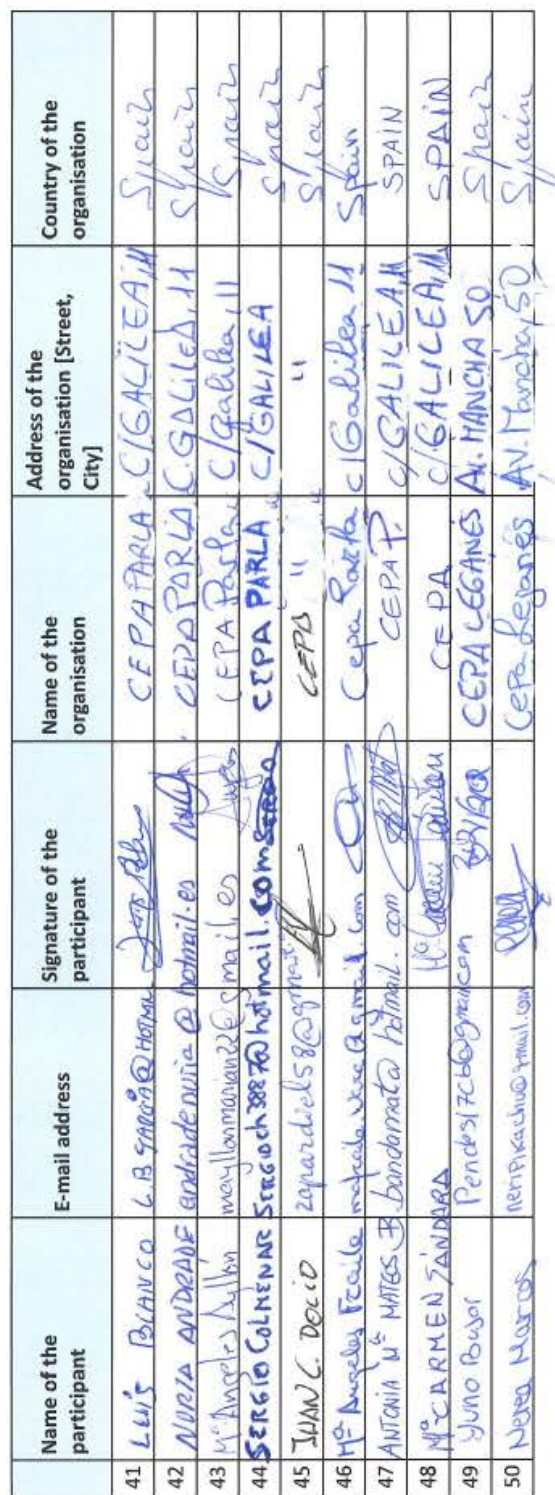 Name of the participant E-mail address Signature of the participant Name of the organisation Address of the organisation [Street, City] Country of the organisation
41 LUIS BLANCO CEPA PARLA C/GALILEA, 11 Spain
42 NURIA ANDRADE andradenuria@hotmail.es CEPA PARLA C.GALILEA, 11 Spain
43 Mª Angeles Ayllón mayllonmarian22@gmail.es CEPA Parla C/Galilea, 11 Spain
44 SERGIO COLMENAR CEPA PARLA C/GALILEA Spain
45 JUAN C. DOCIO zapardiel58@gmail. CEPA " " Spain
46 Mª Angeles Fraile Cepa Parla C/Galilea 11 Spain
47 ANTONIA Mª MATEOS B. bandamata@hotmail.com CEPA P. C/GALILEA, 11 SPAIN
48 Mª CARMEN SÁNDARA CEPA C/GALILEA, 11 SPAIN
49 CEPA LEGANÉS AV. MANCHA 50 Spain
50 Nerea Marcos neripikachu@gmail.com Cepa Leganés AV. Mancha, 50 Spain